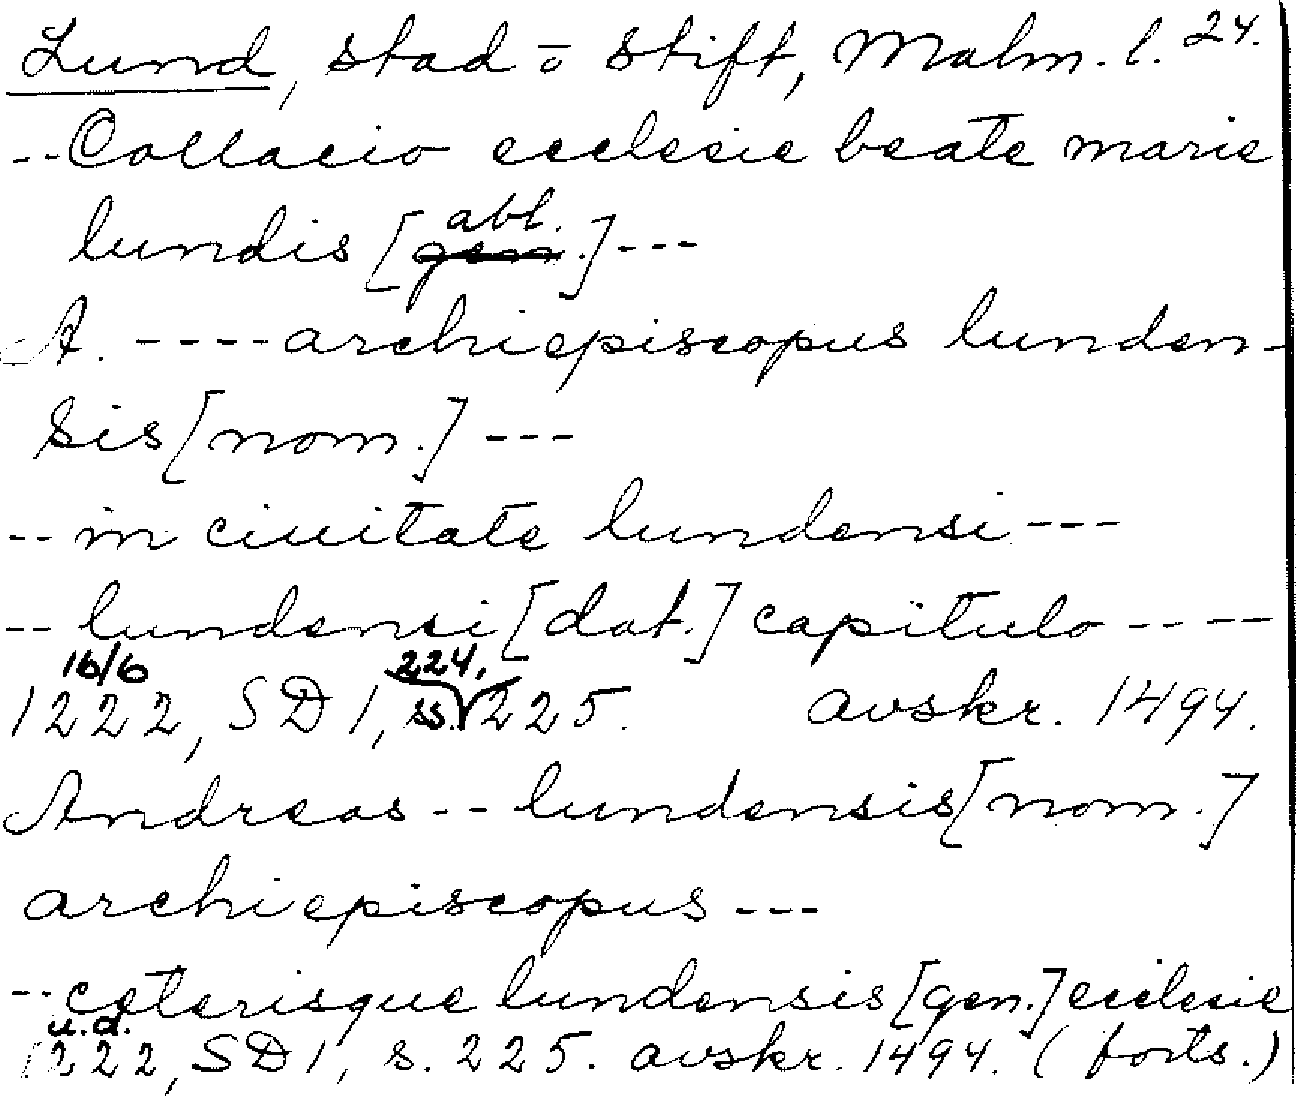 Lund, stad o stift, Malm. l. 24.
--Collacio ecclesie beate marie
lundis [abl.]---
A. ----archiepiscopus lunden-
sis [nom.] ---
-- in ciuitate lundensi---
-- lundensi [dat.] capitulo ----
16/6 224,
1222, SD 1, ss. 225. avskr. 1494.
Andreas -- lundensis [nom.]
archiepiscopus ---
--ceterisque lundensis [gen.] ecclesie
u.d.
1222, SD 1, s. 225. avskr. 1494. (forts.)